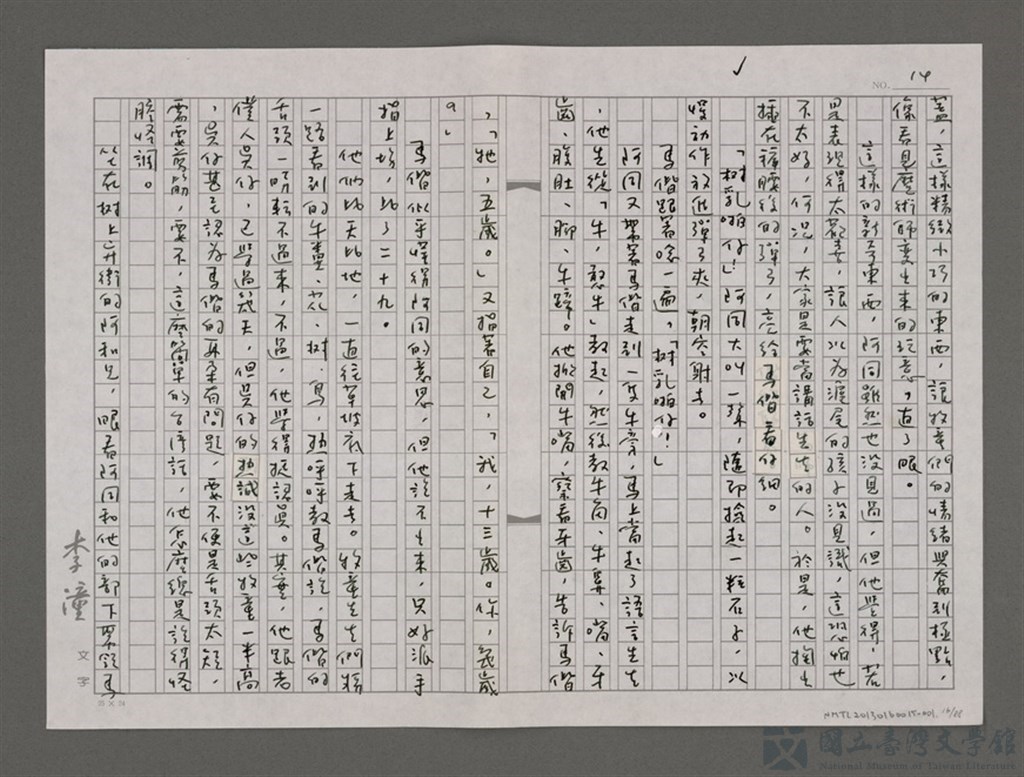 NO. 14
蓋，這樣精緻小巧的東西，讓牧童們的情緒興奮到極點，
像看見魔術師變出來的玩意，直了眼。
這樣的新奇東西，阿同雖然也沒見過，但他覺得，若
是表現得太驚奇，讓人以為滬尾的孩子沒見識，這恐怕也
不太好，何況，大家是要當講話先生的人。於是，他掏出
插在褲腰後的彈弓，亮給馬偕看仔細。
「树乳啪仔！」阿同大叫一聲，隨即撿起一粒石子，以
慢動作放進彈弓夾，朝空射去。
馬偕跟著唸一遍，「树乳啪仔！」
阿同又帶著馬偕走到一隻牛旁，馬上當起了語言先生
，他先從「牛，憨牛」教起，然後教牛角、牛鼻、嘴、牙
齒、腹肚、腳、牛蹄。他掀開牛嘴，察看牙齒，告訴馬偕
，「牠，五歲。」又指著自己，「我，十三歲。你，幾歲
？」
馬偕似乎懂得阿同的意思，但他說不出來，只好派手
指上場，比了二十九。
他們比天比地，一直往草坡底下走去。牧童先生們將
一路看到的牛、花、树、鳥，熱呼呼教馬偕說，馬偕的
舌頭一時転不過來，不過，他學得挺認真。其實，他跟著
僕人吳仔，已學過幾天，但吳仔的熱誠沒這些牧童一半高
，吳仔甚至認為馬偕的耳朵有問題，要不便是舌頭太短，
需要剪筋，要不，這麼簡單的台湾話，他怎麼總是說得怪
腔怪調。
坐在树上的阿和兄，眼看阿同和他的部下要領馬
李潼
文字
25×24
NMTL20130160015-001. 14/88
國立臺灣文學館
National Museum of Taiwan Literature